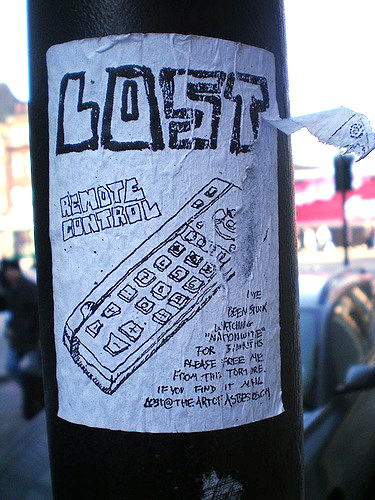 LOST
REMOTE
CONTROL
I'VE
BEEN STUCK
WATCHING
"NATIONWIDE"
FOR 3 MONTHS
PLEASE FREE ME
FROM THIS TORTURE.
IF YOU FIND IT MAIL